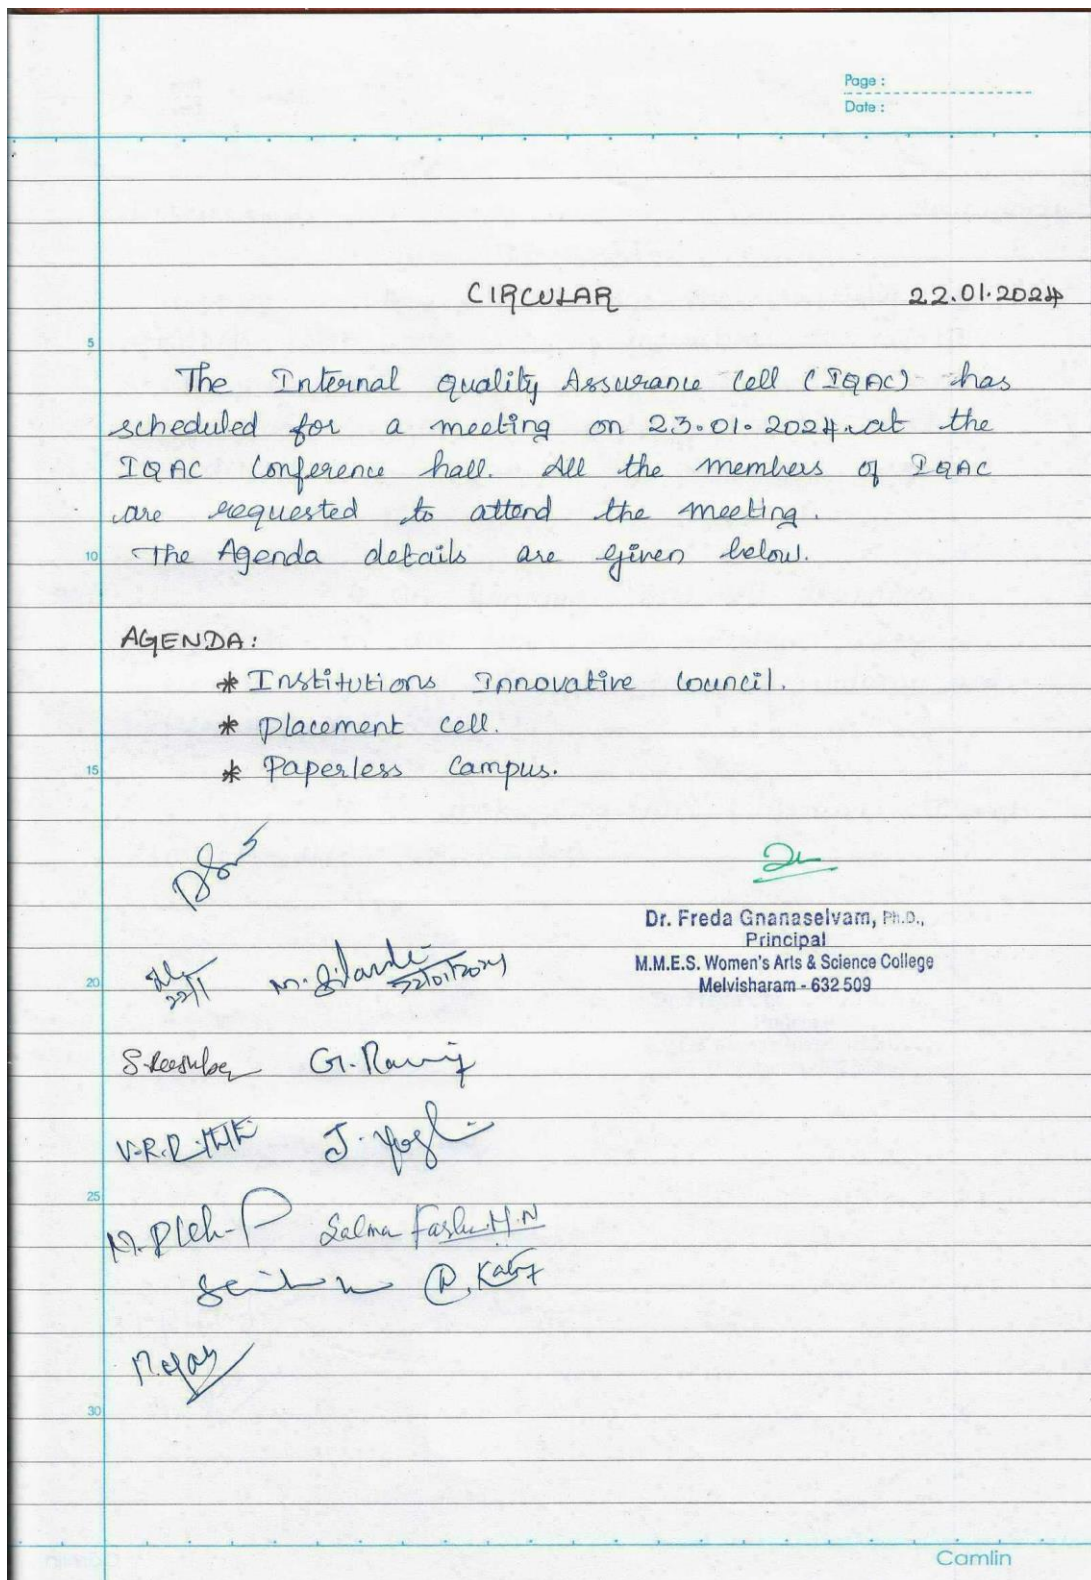 Page :
Date :
CIRCULAR 22.01.2024
5
The Internal quality Assurance Cell (IQAC) has
scheduled for a meeting on 23.01.2024 at the
IQAC Conference hall. All the members of IQAC
are requested to attend the meeting.
10 The Agenda details are given below.
AGENDA:
* Institutions Innovative Council.
* Placement cell.
15 * Paperless Campus.
Dr. Freda Gnanaselvam, Ph.D.,
Principal
M.M.E.S. Women's Arts & Science College
20 22/1 22/01/2024 Melvisharam - 632 509
25
Salma
30
Camlin